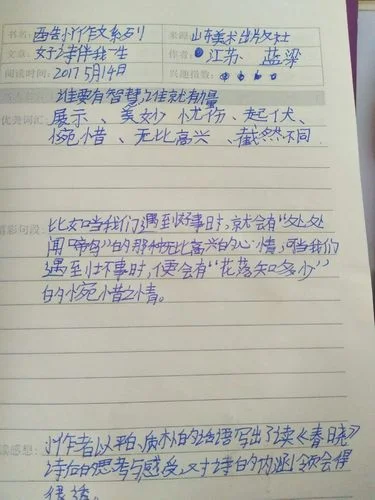 书名: 西壮小作文系列 来源: 山东美术出版社
文章: 好诗伴我一生 作者: 江苏、蓝梁
阅读时间: 2017 5月14日 兴趣指数:
谁要有智慧,谁就有力量
优美词汇: 展示、美妙 忧伤、起伏、
惋惜、无比高兴、截然不同
精彩句段: 比如当我们遇到好事时,就会有“处处
闻啼鸟”的那种无比高兴的心情,可当我们
遇到坏事时,便会有“花落知多少”
的惋惜之情。
读感想: 小作者以平白质朴的话语写出了读《春晓》
诗句的思考与感受,对诗的内涵领会得
很透。